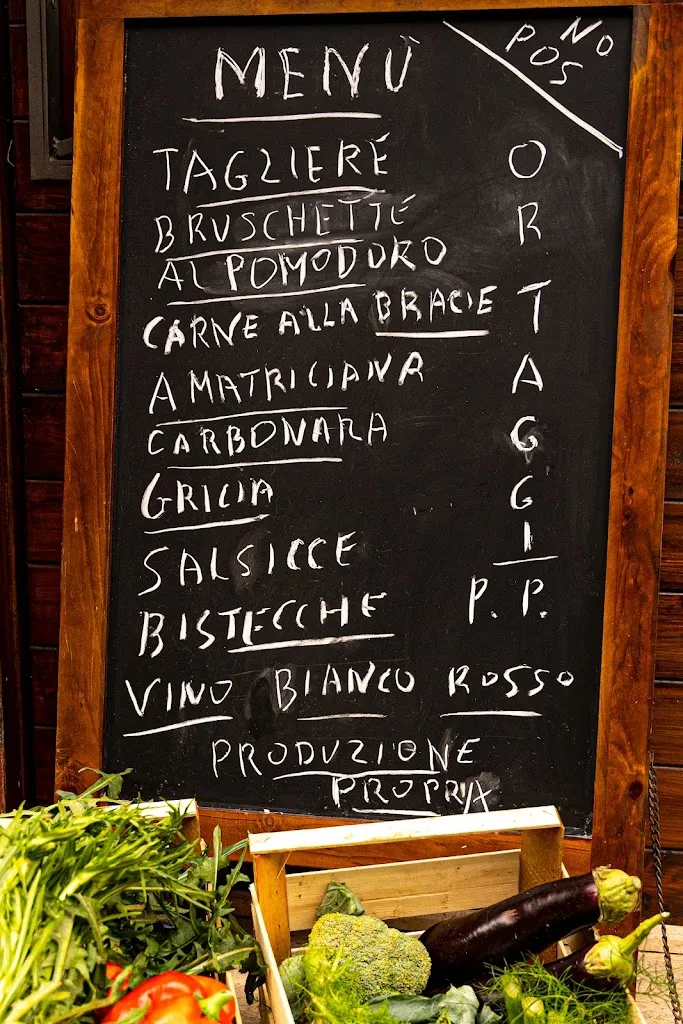 MENÙ
NO
POS
TAGLIERÉ
BRUSCHETTÉ
AL POMODORO
CARNE ALLA BRACIE
AMATRICIANA
CARBONARA
GRICIA
SALSICCE
BISTECCHE
O
R
T
A
G
G
I
P. P.
VINO BIANCO ROSSO
PRODUZIONE
PROPRIA